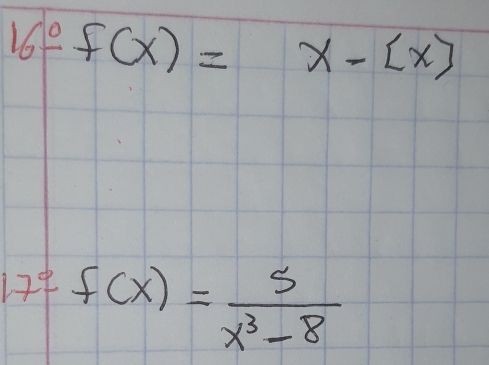 16º f(x) = x - [x]
17º f(x) = 5 / (x³ - 8)